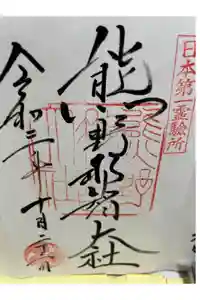 日本第一霊験所
熊野那智大社
令和二年十月二十日